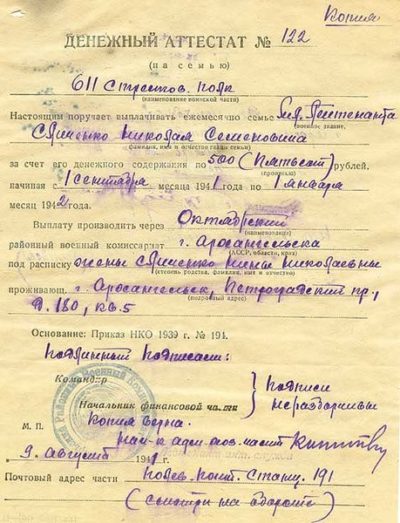 Копия
ДЕНЕЖНЫЙ АТТЕСТАТ № 122
(на семью)
611 Стрелков. полк
(наименование воинской части)
Настоящим поручает выплачивать ежемесячно семье Мл. Лейтенанта
(военное звание,
Николая Семеновича
фамилия, имя и отчество главы семьи)
за счет его денежного содержания по 500 (Пятьсот) рублей,
(прописью)
начиная с 1 сентября месяца 1941 года по 1 января
месяц 1942 года.
Выплату производить через Октябрский
(наименование)
районный военный комиссариат г. Архангельска
(АССР, область, край)
под расписку жены Нины Николаевны
(степень родства, фамилия, имя и отчество)
проживающ. г. Архангельск, Петроградский пр.,
(подробный адрес)
д. 160, кв. 5
Основание: Приказ НКО 1939 г. № 194.
Подлинный подписали:
Командир
подписи
Начальник финансовой части
неразборчивы
М. П. Копия верна:
9 августа 194
Почтовый адрес части 191
(смотри на обороте)